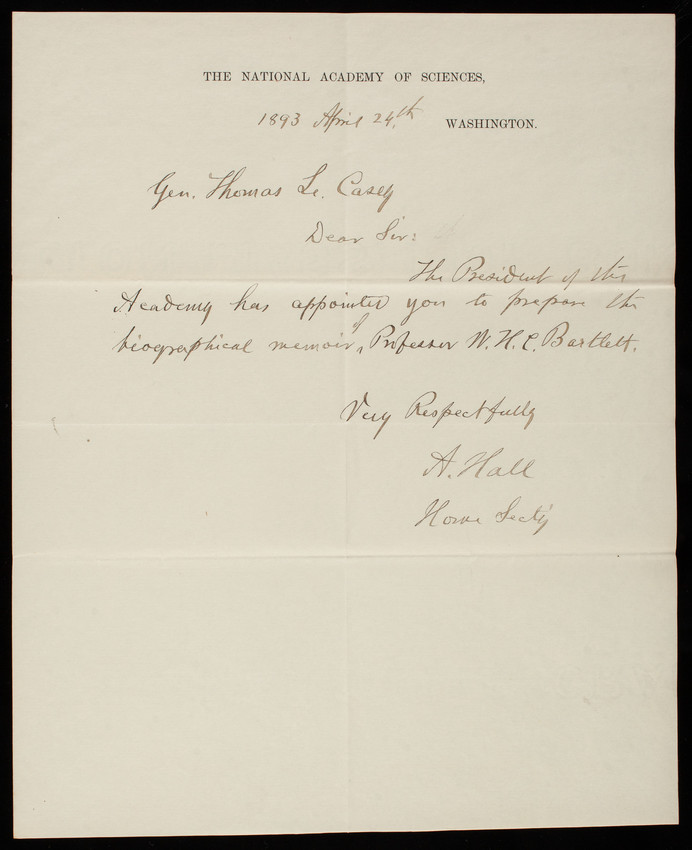 THE NATIONAL ACADEMY OF SCIENCES,
1893 April 24th. WASHINGTON.
Gen. Thomas L. Casey
Dear Sir:
The President of the
Academy has appointed you to prepare the
biographical memoir of Professor W. H. C. Bartlett.
Very Respectfully
A. Hall
Home Secty